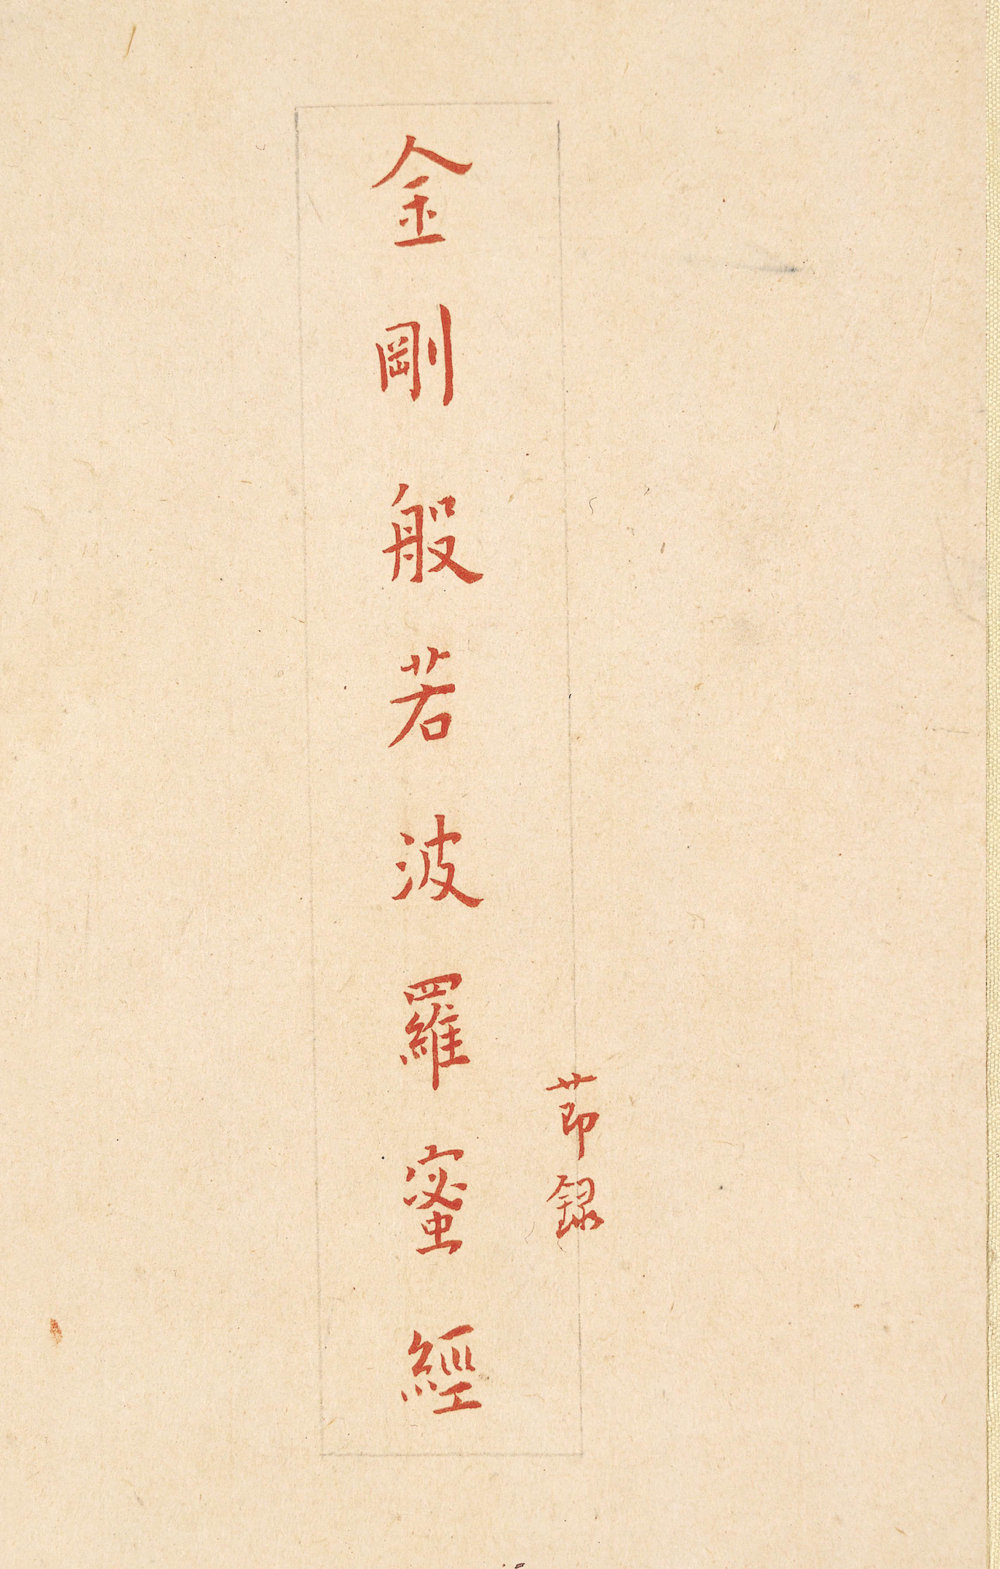 金剛般若波羅蜜經
莭錄